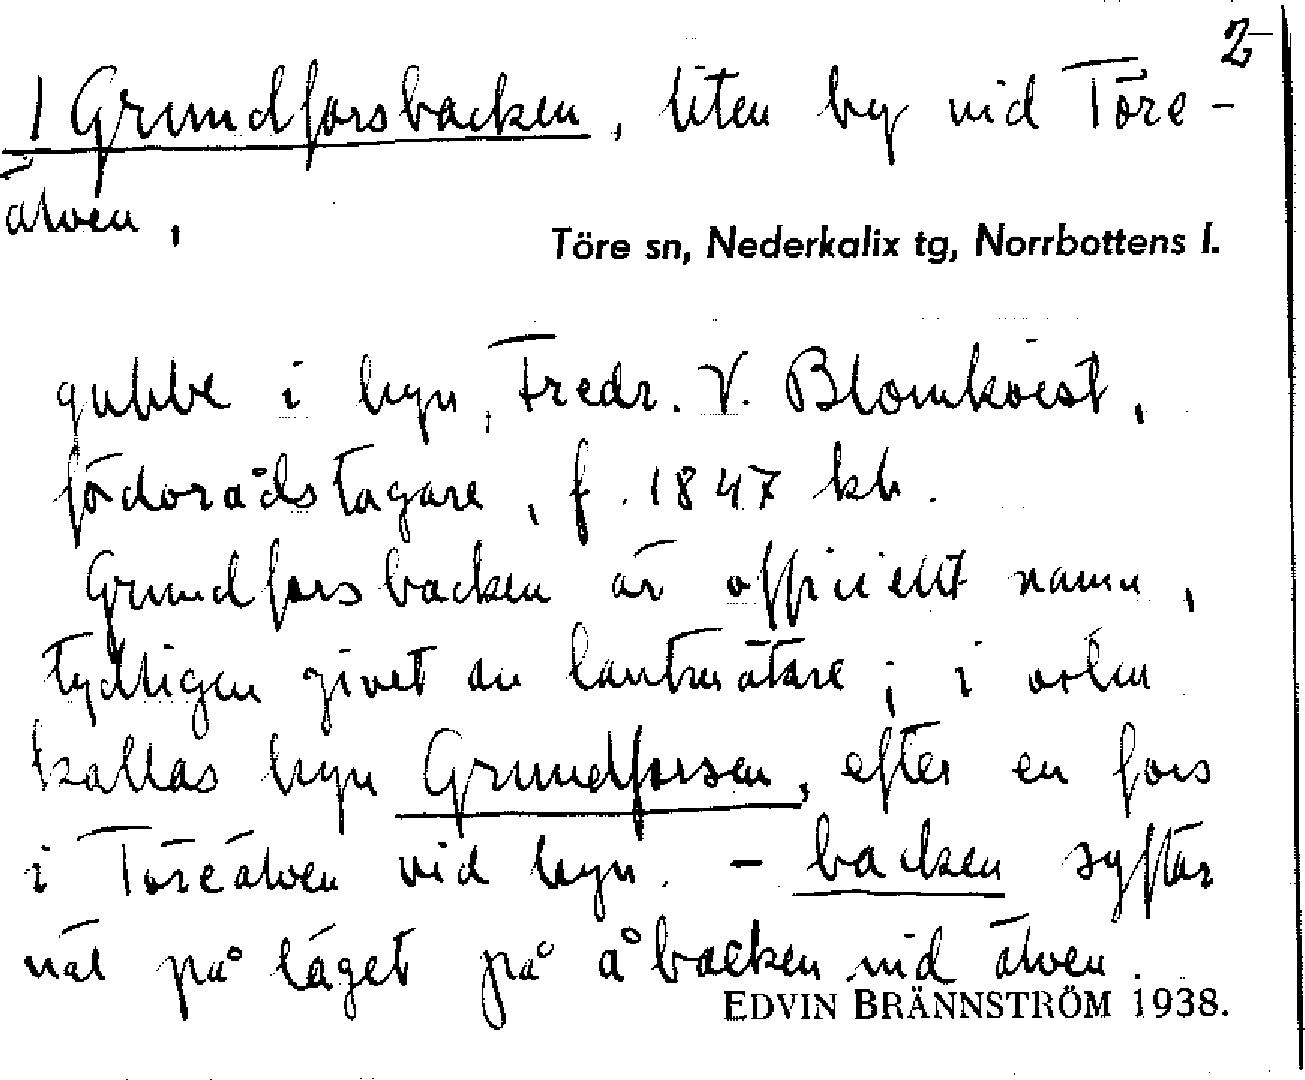 2
1 Grundforsbacken, liten by vid Töre-
älven,
Töre sn, Nederkalix tg, Norrbottens l.
gubbe i byn, Fredr. V. Blomkvist,
födorådstagare, f. 1847 kb.
Grundforsbacken är officiellt namn,
tydligen givet av lantmätare; i orten
kallas byn Grundforsen, efter en fors
i Töreälven vid byn. - backen syftar
väl på läget på åbacken vid älven.
EDVIN BRÄNNSTRÖM 1938.